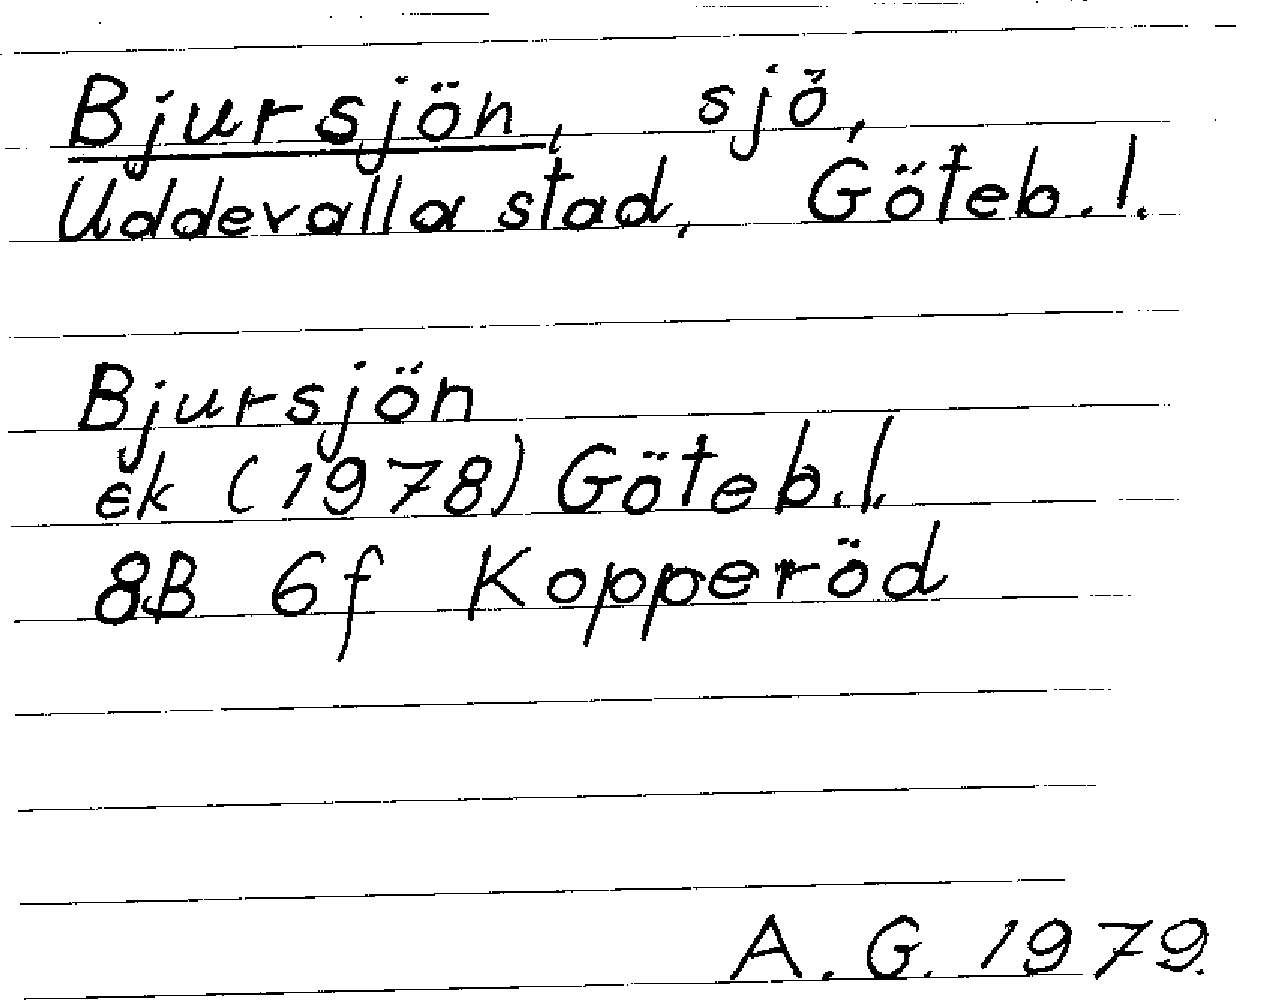 Bjursjön, sjö,
Uddevalla stad, Göteb. l.
Bjursjön
ek (1978) Göteb. l.
8B 6f Kopperöd
A. G. 1979.